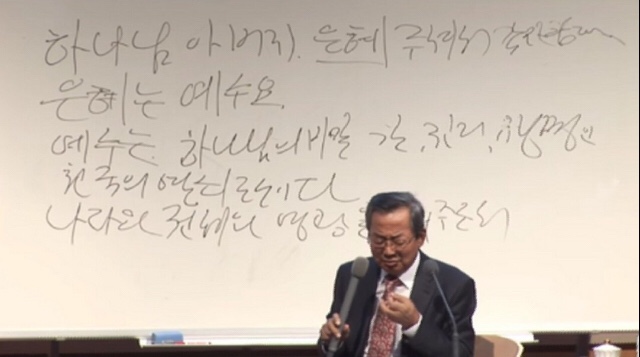 하나님 아버지. 은혜 주셔서 감사합니다
은혜는 예수요.
예수는 하나님의 비밀 길, 진리, 생명인
천국의 열쇠
나라와 권세와 영광을 주소서